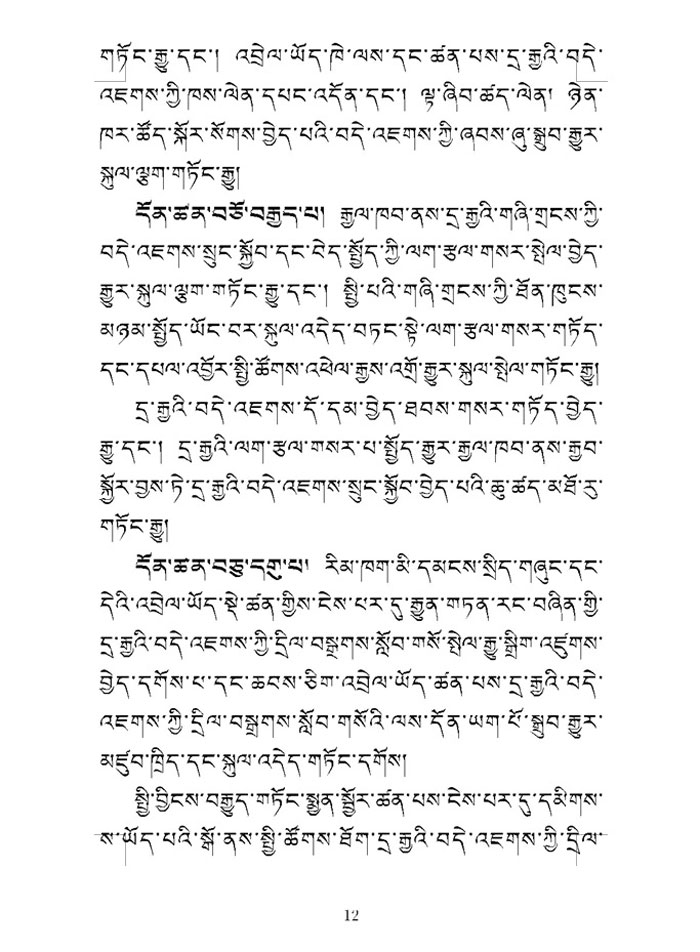 གཏོང་རྒྱུ་དང་། འབྲེལ་ཡོད་ཁེ་ལས་དང་ཚན་པས་དྲ་རྒྱའི་བདེ་
འཇགས་ཀྱི་ཁས་ལེན་དཔང་འདོན་དང་། ལྟ་ཞིབ་ཚད་ལེན། ཉེན་
ཁར་ཚོད་སྐོར་སོགས་བྱེད་པའི་བདེ་འཇགས་ཀྱི་ཞབས་ཞུ་སྒྲུབ་རྒྱུར་
སྐུལ་ལྕག་གཏོང་རྒྱུ།
དོན་ཚན་བཅོ་བརྒྱད་པ། རྒྱལ་ཁབ་ནས་དྲ་རྒྱའི་གཞི་གྲངས་ཀྱི་
བདེ་འཇགས་སྲུང་སྐྱོབ་དང་བེད་སྤྱོད་ཀྱི་ལག་རྩལ་གསར་སྤེལ་བྱེད་
རྒྱུར་སྐུལ་ལྕག་གཏོང་རྒྱུ་དང་། སྤྱི་པའི་གཞི་གྲངས་ཀྱི་ཐོན་ཁུངས་
མཉམ་སྤྱོད་ཡོང་བར་སྐུལ་འདེད་བཏང་སྟེ་ལག་རྩལ་གསར་གཏོད་
དང་དཔལ་འབྱོར་སྤྱི་ཚོགས་འཕེལ་རྒྱས་འགྲོ་རྒྱུར་སྐུལ་སྤེལ་གཏོང་རྒྱུ།
དྲ་རྒྱའི་བདེ་འཇགས་དོ་དམ་བྱེད་ཐབས་གསར་གཏོད་བྱེད་
རྒྱུ་དང་། དྲ་རྒྱའི་ལག་རྩལ་གསར་པ་སྤྱོད་རྒྱུར་རྒྱལ་ཁབ་ནས་རྒྱབ་
སྐྱོར་བྱས་ཏེ་དྲ་རྒྱའི་བདེ་འཇགས་སྲུང་སྐྱོབ་བྱེད་པའི་ཆུ་ཚད་མཐོ་རུ་
གཏོང་རྒྱུ།
དོན་ཚན་བཅུ་དགུ་པ། རིམ་ཁག་མི་དམངས་སྲིད་གཞུང་དང་
དེའི་འབྲེལ་ཡོད་སྡེ་ཚན་གྱིས་ངེས་པར་དུ་རྒྱུན་གཏན་རང་བཞིན་གྱི་
དྲ་རྒྱའི་བདེ་འཇགས་ཀྱི་དྲིལ་བསྒྲགས་སློབ་གསོ་སྤེལ་རྒྱུ་སྒྲིག་འཛུགས་
བྱེད་དགོས་པ་དང་ཆབས་ཅིག་འབྲེལ་ཡོད་ཚན་པས་དྲ་རྒྱའི་བདེ་
འཇགས་ཀྱི་དྲིལ་བསྒྲགས་སློབ་གསོའི་ལས་དོན་ཡག་པོ་སྒྲུབ་རྒྱུར་
མཛུབ་ཁྲིད་དང་སྐུལ་འདེད་གཏོང་དགོས།
སྤྱི་བྱིངས་བརྒྱུད་གཏོང་སྨྱན་སྦྱོར་ཚན་པས་ངེས་པར་དུ་དམིགས་
ས་ཡོད་པའི་སྒོ་ནས་སྤྱི་ཚོགས་ཐོག་དྲ་རྒྱའི་བདེ་འཇགས་ཀྱི་དྲིལ་
12